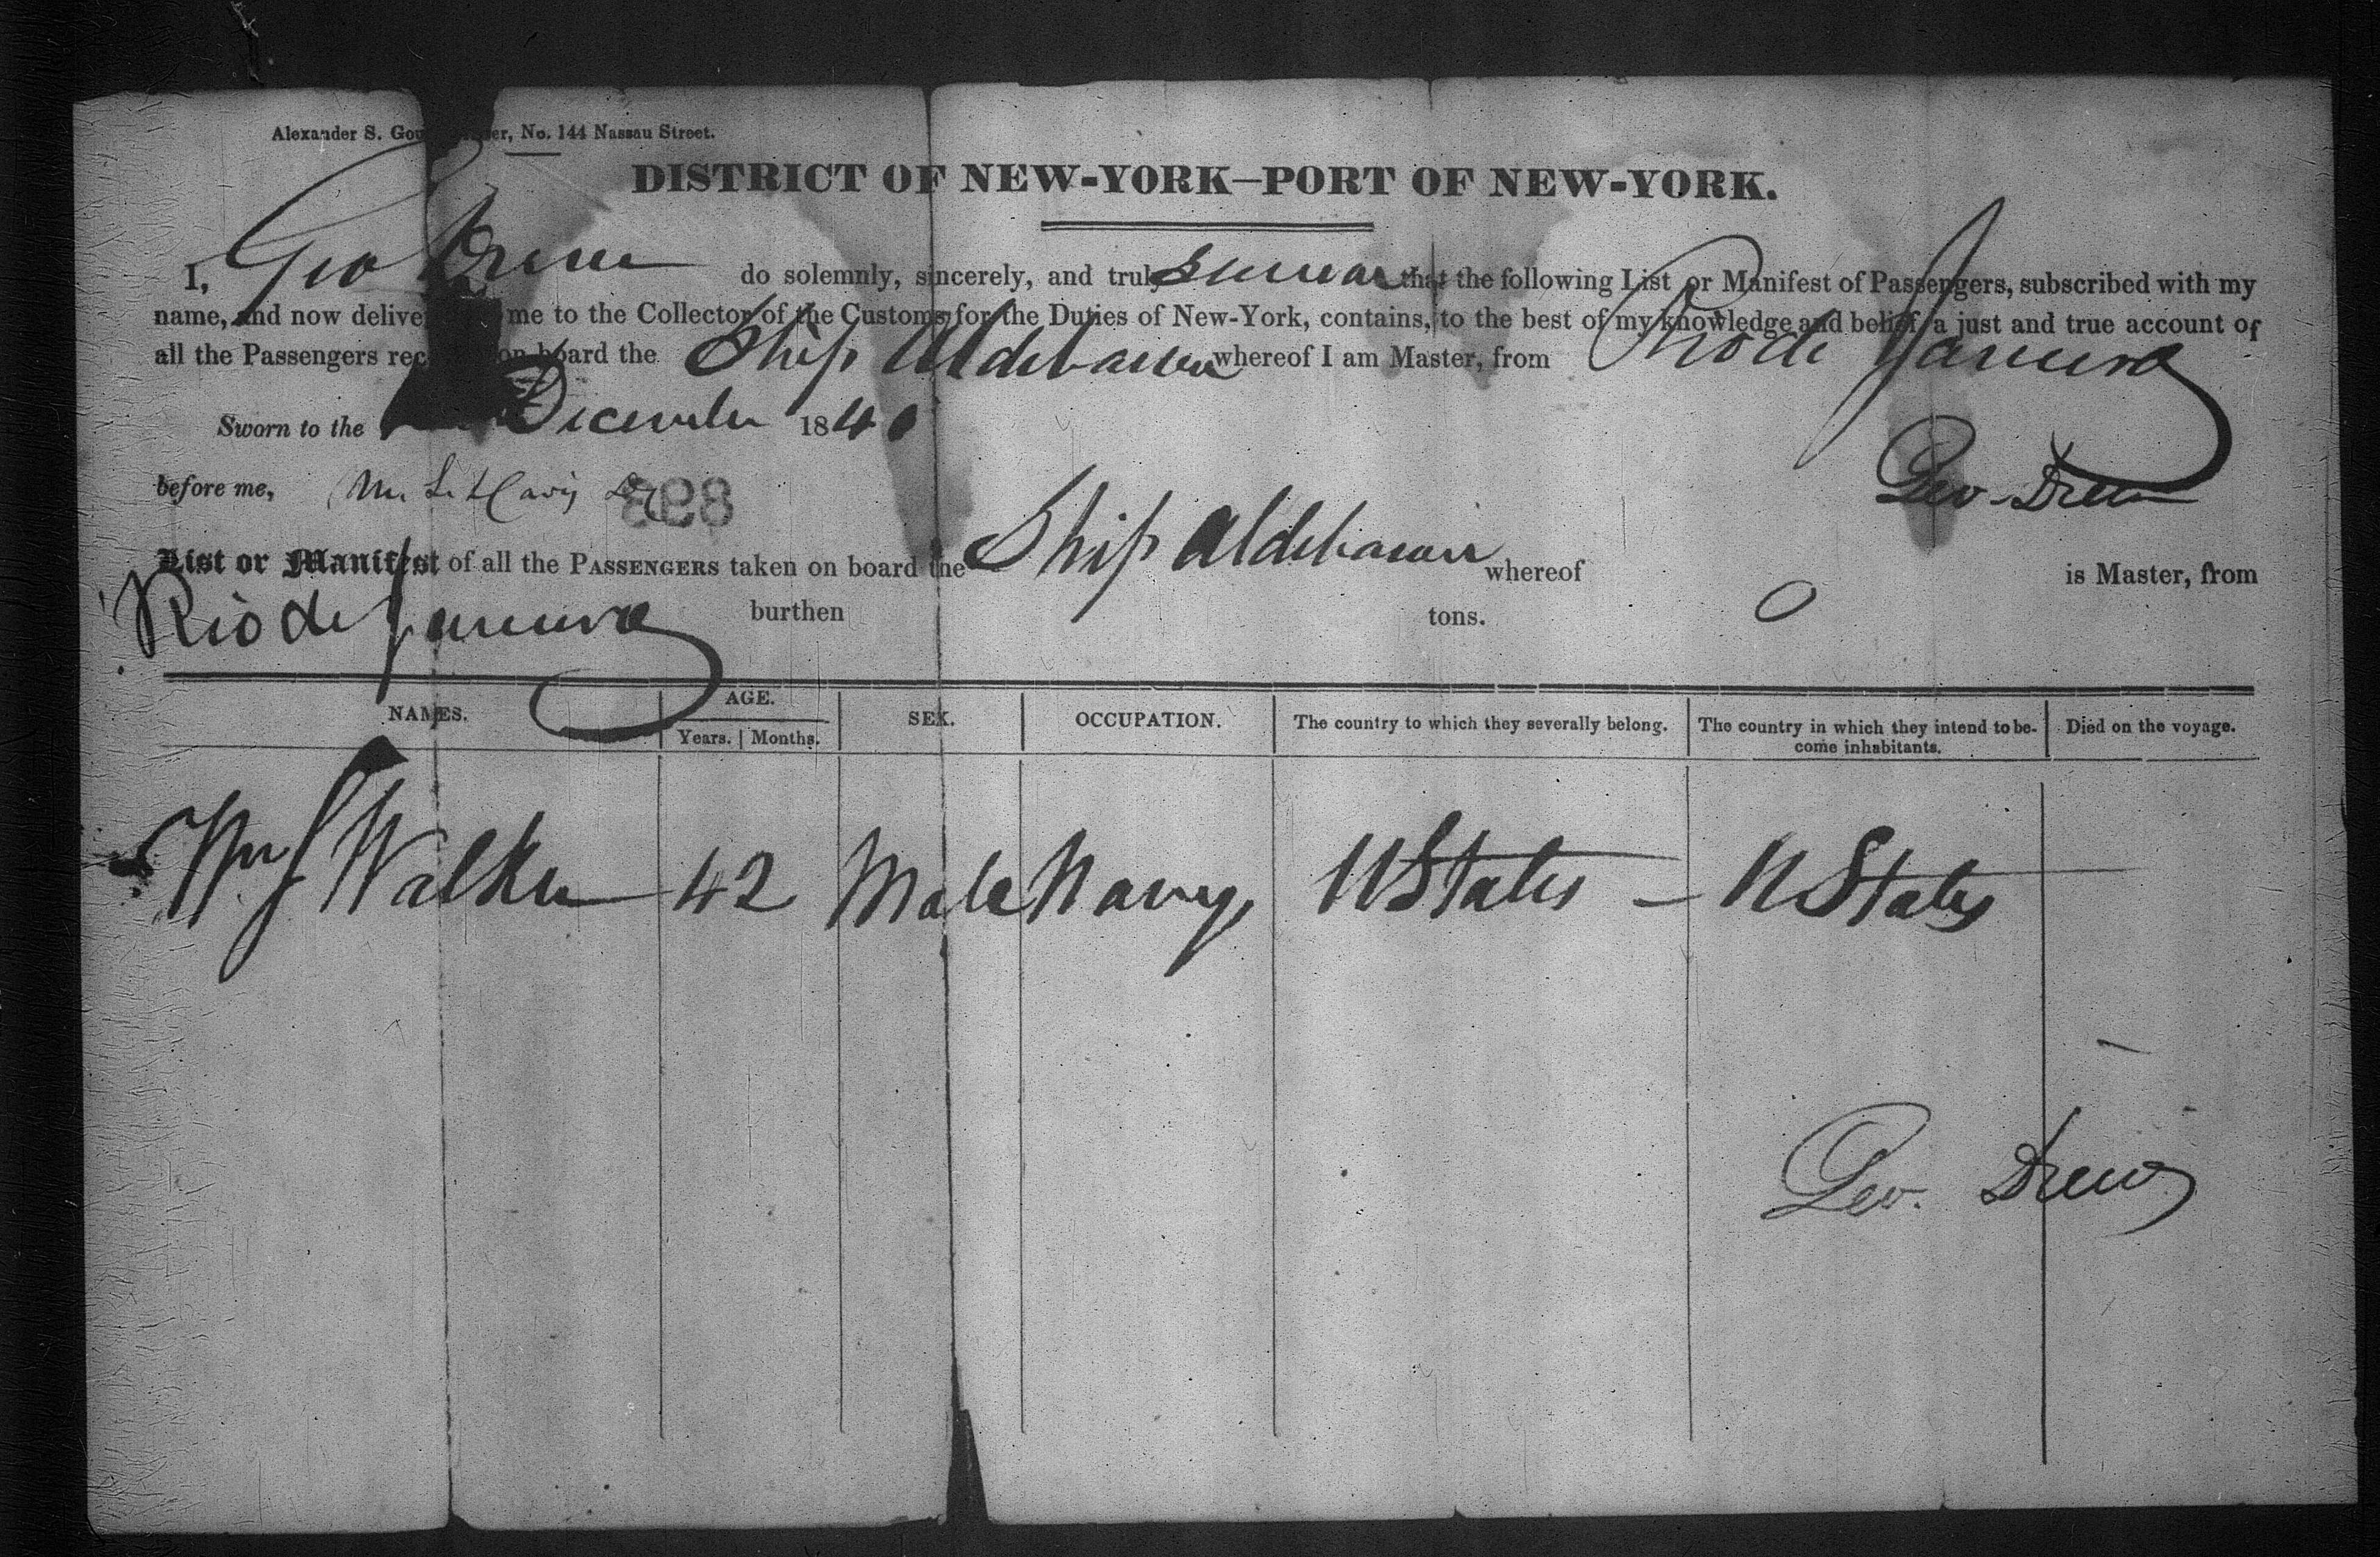 Alexander S. Gou er, No. 144 Nassau Street.
DISTRICT OF NEW-YORK—PORT OF NEW-YORK.
I, Geo Drew do solemnly, sincerely, and truly swear that the following List or Manifest of Passengers, subscribed with my
name, and now delive me to the Collector of the Customs for the Duties of New-York, contains, to the best of my knowledge and belief, a just and true account of
all the Passengers rec on board the Ship Aldebaran whereof I am Master, from Rio de Janeiro
Sworn to the December 184
before me,
Geo Drew
893
List or Manifest of all the PASSENGERS taken on board the Ship Aldebaran whereof is Master, from
Rio de Janeiro burthen tons.
NAMES. AGE. SEX. OCCUPATION. The country to which they severally belong. The country in which they intend to be- Died on the voyage.
Years. Months. come inhabitants.
Wm J Walker 42 Male Navy, U States — U States
Geo. Drew